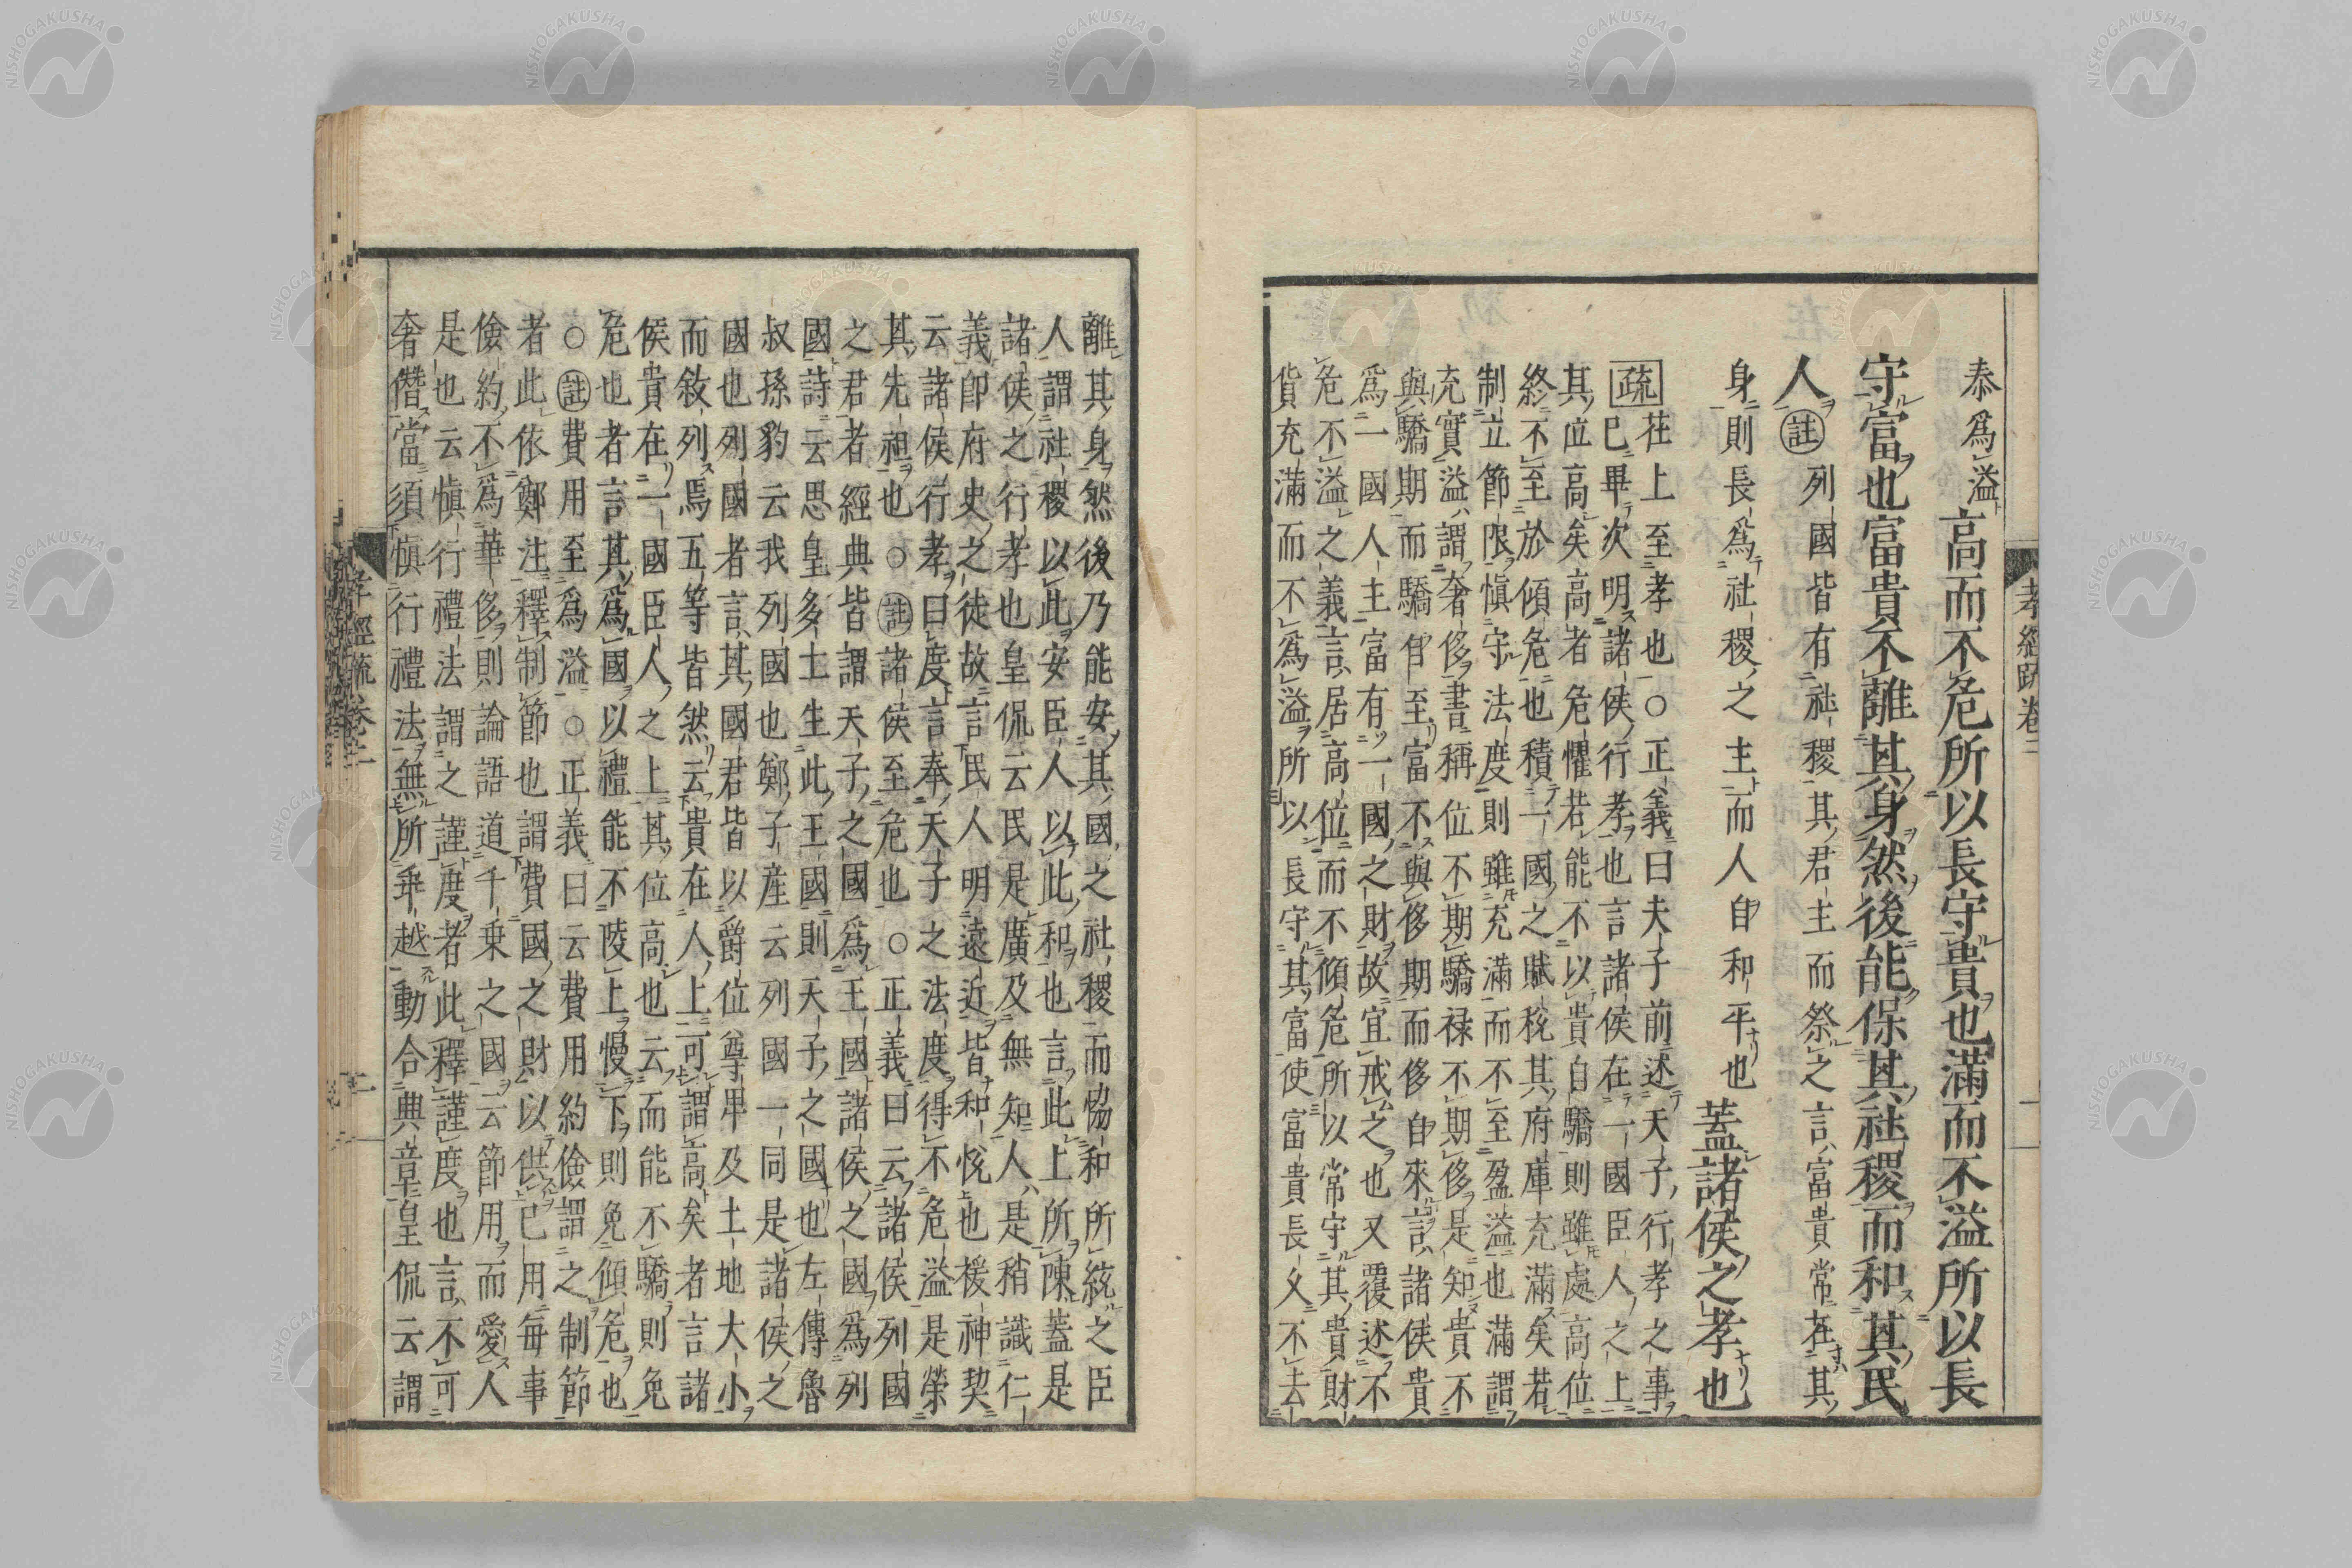 泰爲溢高而不危所以長守貴也滿而不溢所以長
守富也富貴不離其身然後能保其社稷而和其民
人註列國皆有社稷其君主而祭之言富貴常在其
身則長爲社稷之主而人自和平也蓋諸侯之孝也
疏在上至孝也○正義曰夫子前述天子行孝之事
已畢次明諸侯行孝也言諸侯在一國臣人之上
其位高矣高者危懼若能不以貴自驕則雖處高位
終不至於傾危也積一國之賦稅其府庫充滿矣若
制立節限慎守法度則雖充滿而不至盈溢也滿謂
充實溢謂奢侈書稱位不期驕祿不期侈是知貴不
與驕期而驕自至富不與侈期而侈自來言諸侯貴
爲一國人主富有一國之財故宜戒之也又覆述不
危不溢之義言居高位而不傾危所以常守其貴財
貨充滿而不爲溢所以長守其富使富貴長久不去
孝經疏卷二
離其身然後乃能安其國之社稷而協和所統之臣
人謂社稷以此安臣人以此和也言此上所陳蓋是
諸侯之行孝也皇侃云民是廣及無知人是稍識仁
義即府史之徒故言民人明遠近皆和悅也援神契
云諸侯行孝曰度言奉天子之法度得不危溢是榮
其先祖也○註諸侯至危也○正義曰云諸侯列國
之君者經典皆謂天子之國爲王國諸侯之國爲列
國詩云思皇多士生此王國則天子之國也左傳魯
叔孫豹云我列國也鄭子産云列國一同是諸侯之
國也列國者言其國君皆以爵位尊卑及土地大小
而敘列焉五等皆然云貴在人上可謂高矣者言諸
侯貴在一國臣人之上其位高也云而能不驕則免
危也者言其爲國以禮能不陵上慢下則免傾危也
○註費用至爲溢○正義曰云費用約儉謂之制節
者此依鄭注釋制節也謂費國之財以供己用每事
儉約不爲華侈則論語道千乗之國云節用而愛人
是也云慎行禮法謂之謹度者此釋謹度也言不可
奢僭當須慎行禮法無所乖越動合典章皇侃云謂
孝經疏卷二
NISHOGAKUSHA